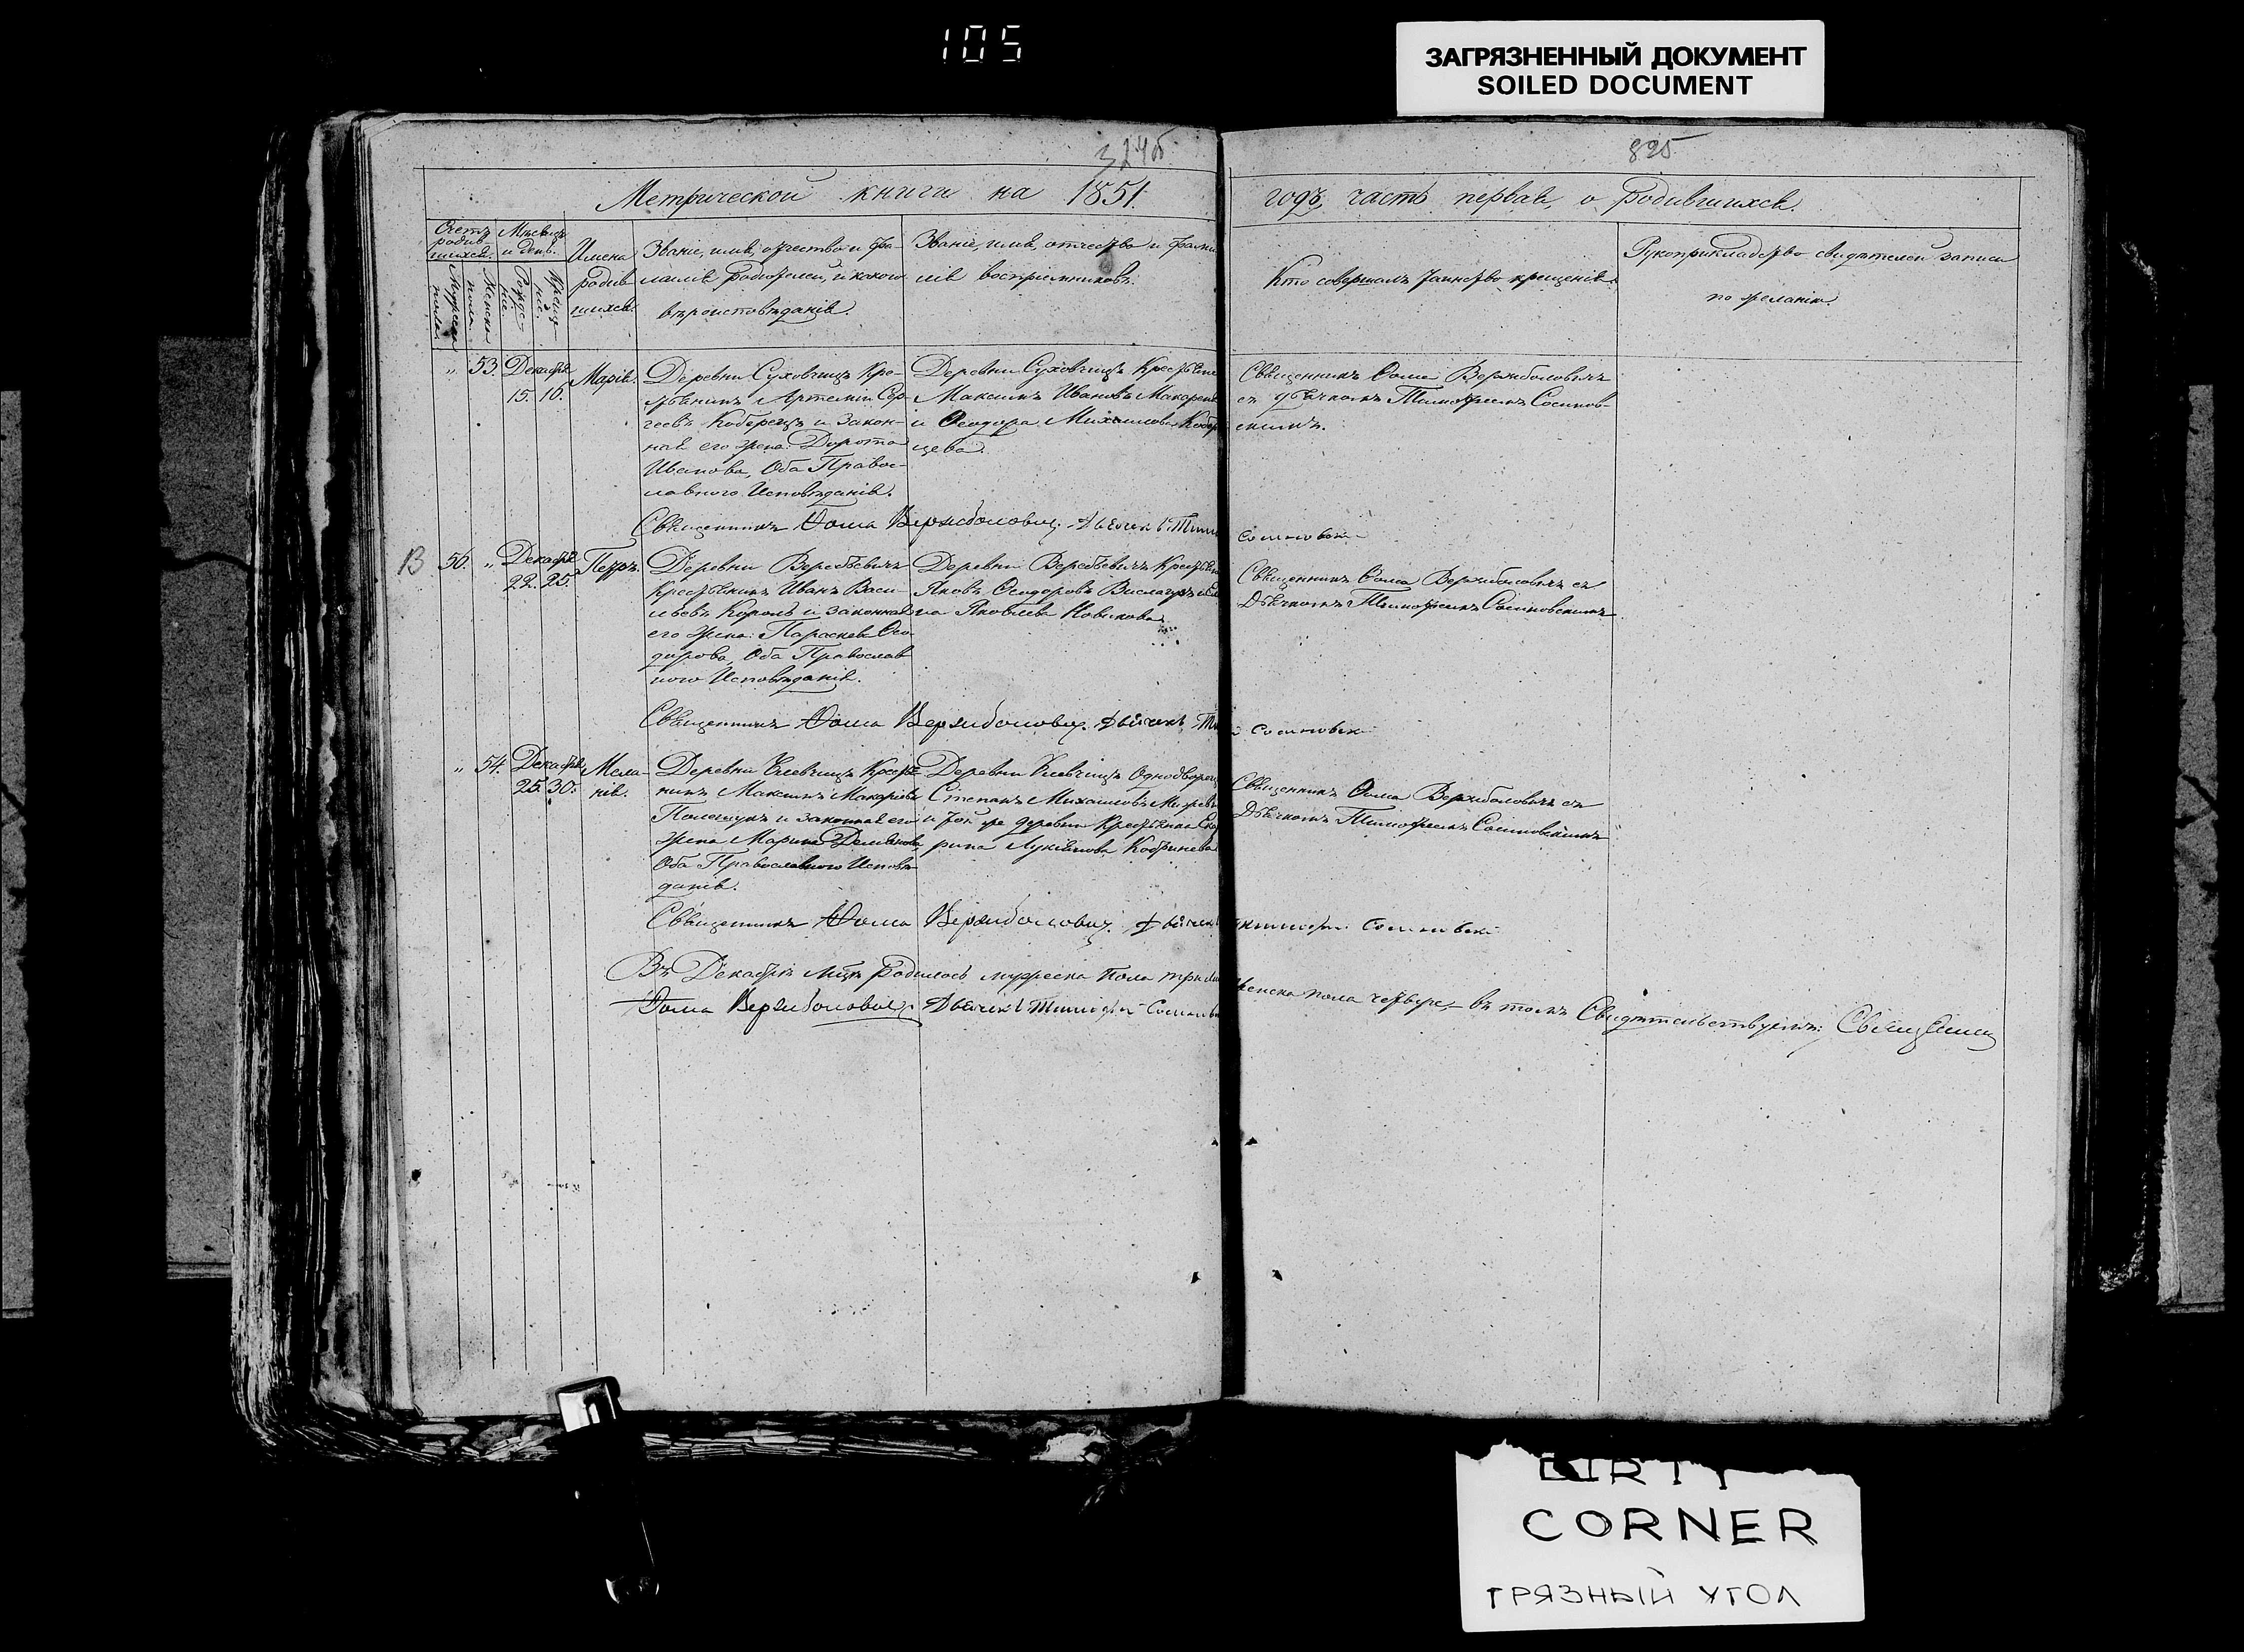 105
ЗАГРЯЗНЕННЫЙ ДОКУМЕНТ
SOILED DOCUMENT
895
Метрической книги на 1851.
годъ, часть первая, о родившихся.
Счетъ родив-шихся.
Мужеска пола.
Женска пола.
Мѣсяцъ и день.
Рожде-нія.
Креще-нія.
Имена родив шихся.
Званіе, имя, отчество и фа-
милія родителей, и какого
вѣроисповѣданія.
Званіе, имя, отчество и фами
лія воспріемниковъ.
Кто совершалъ таинство крещенія.
Рукоприкладство свидѣтелей записи
по желанію.
„ 53. Декабря 15. 16. Марія.
Деревни Суховчицъ Кре-
стьянинъ Артемій Сер-
геевъ Коберецъ и закон-
ная его жена Дорота
Иванова, Оба Правос-
лавного Исповѣданія.
Деревни Суховчицъ Крестьяне
Максимъ Ивановъ Макарен
и Ѳеодора Михаилова Кобер
цева.
Священникъ Ѳома Вержболовичъ
съ дьячкомъ Тимофеемъ Сосинов-
скимъ.
Священникъ Ѳома Вержболовичъ. Дьячекъ Тим
Сосиновскі
13 50. „ Декабря 22. 25. Петръ.
Деревни
Крестьянинъ Иванъ Васи-
льевъ Король и законная
его жена Параскева Ѳео-
дорова, Оба Православ
ного Исповѣданія.
Деревни
Яковъ Ѳеодоровъ
на Яковлева Новикова
Священникъ Ѳома Вержболовичъ съ
Дьячкомъ Тимофеемъ Сосиновскимъ
Священникъ Ѳома Вержболовичъ. Дьячекъ Ти
Сосиновскі
„ 54. Декабря 25. 30. Мела-нія.
Деревни
нинъ Максимъ Макаріевъ
Полещукъ и законная его
жена Марина Демьянова,
Оба Православного Исповѣ
данія.
Деревни Одноворец
Степанъ Михаиловъ
и той же деревни Крестьянка Ека
рина Лукіянова Кобринева
Священникъ Ѳома Вержболовичъ съ
Дьячкомъ Тимофеемъ Сосиновскимъ
Священникъ Ѳома Вержболовичъ. Дьячекъ
Тимофей Сосиновскі
Въ Декабрѣ мцѣ родилось мужеска пола три
женска пола четверо, въ томъ Свидѣтельствуемъ: Священникъ
Ѳома Вержболовичъ. Дьячекъ Тимофей Сосиновс
DIRTY
CORNER
ГРЯЗНЫЙ УГОЛ